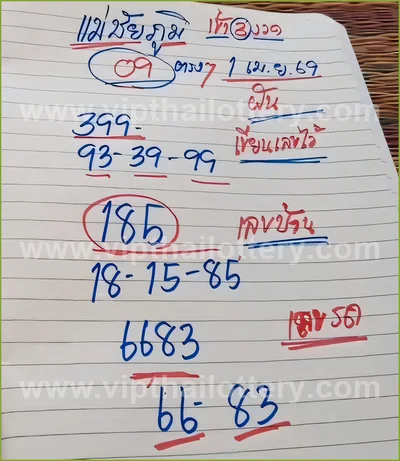 แม่ชัยภูมิ เข้า 3 งวด
09 ตรงๆ 1 เม.ย.69
www.vipthailottery.com
ฝัน
399-
เขียนเลขไว้
93-39-99
185 เลขบ้าน
www.vipthailottery.com
18-15-85
6683 เลขรถ
www.vipthailottery.com
66-83